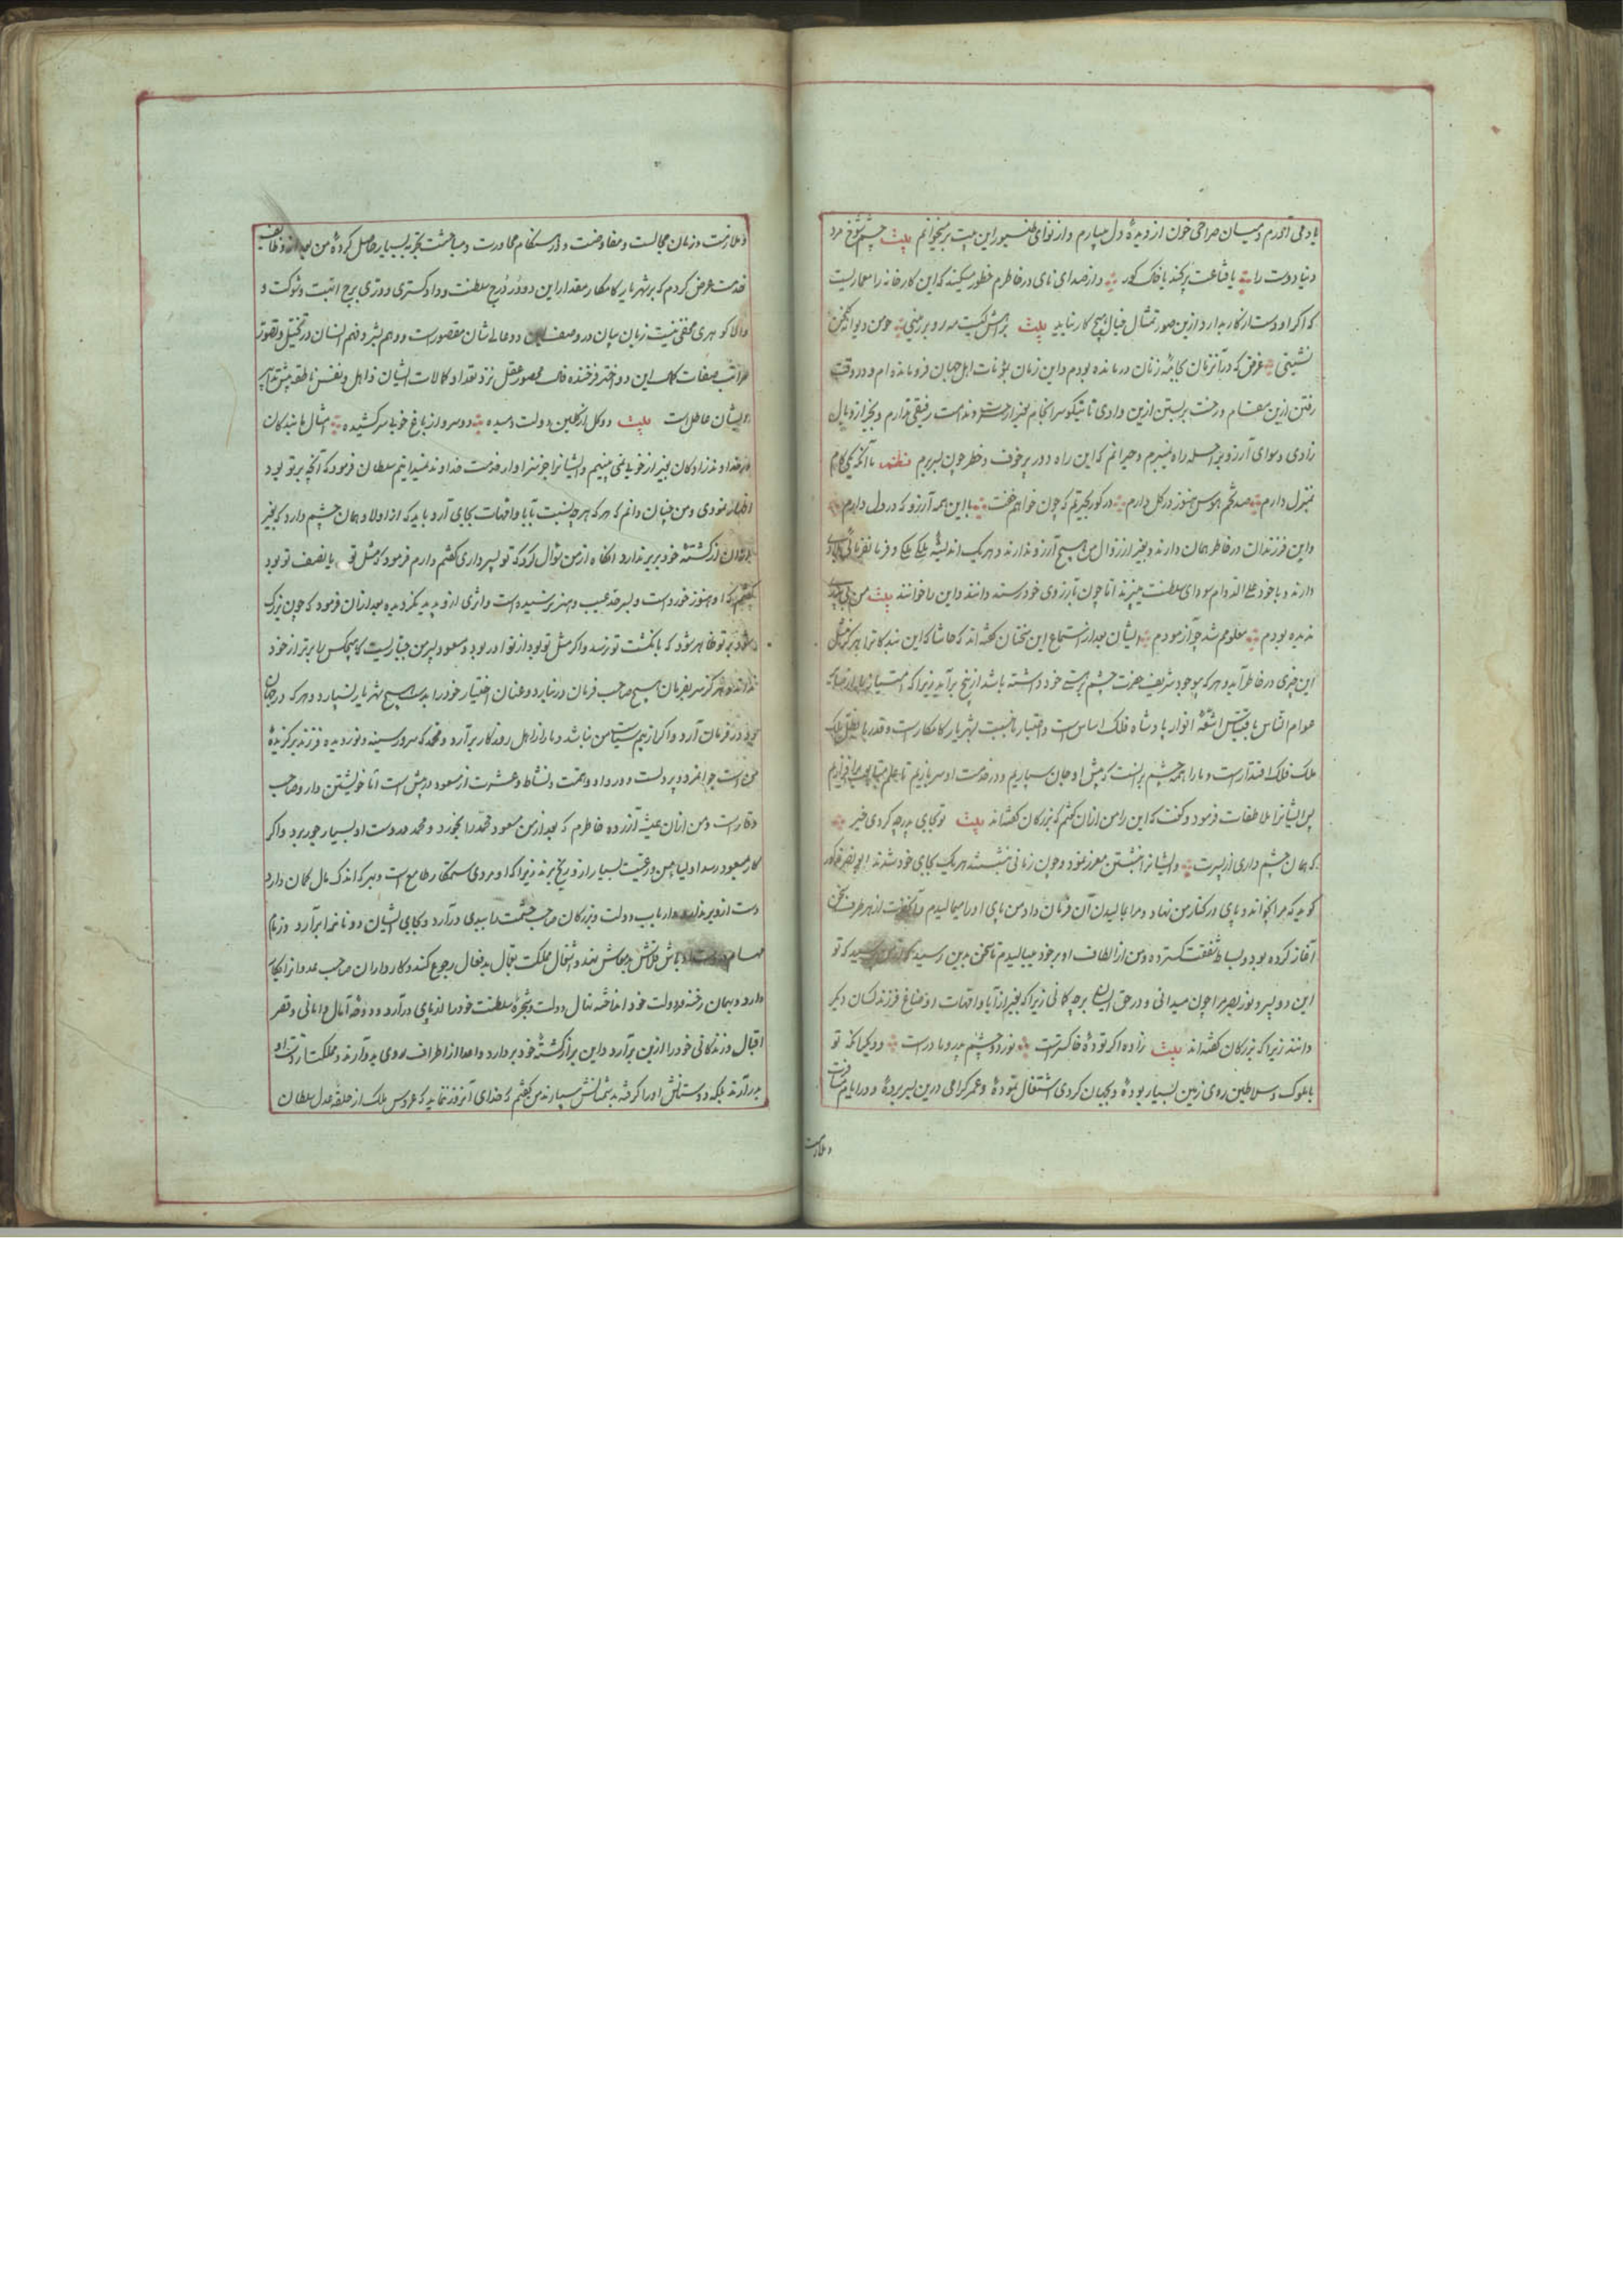 یاد می آورم و میان صراحی خون از دیدهٔ دل میبارم و از نوای طنبور این بیت بر میخوانم بیت چشم شوخ مرد
دنیا دوست را یا قناعت پر کند یا خاک کور و از صدای نای در خاطرم خطور میکند که این کارخانه را معماریست
که اگر او دست از کار بدارد ازین صور تمثال خیال هیچ کار نیاید بیت
نشینی غرض که در آنزمان بجامهٔ زنان درمانده بودم و این زمان بمؤنات اهل جهان فرومانده ام و در وقت
رفتن ازین مقام و رخت بر بستن ازین وادی تا نیکو سرانجام بغیر از حسرت و ندامت رفیقی ندارم و بجز از وبال
زادی و سوای آرزو براحله راه نمیبرم و حیرانم که این راه دور پر خوف و خطر چون بسر برم نظم با آنکه یکی کام
بمنزل دارم صد تخم هوس هنوز در گل دارم در گور بحیرتم که چون خواهم خفت با این همه آرزو که در دل دارم
و این فرزندان در خاطر همان دارند و بغیر از زوال من هیچ آرزو ندارند و هر یک اندیشهٔ ملکی و فرمانفرمائی
دارند و با خود علی الدوام سودای سلطنت میپزند اما چون بآرزوی خود رسند دانند و این را خوانند بیت من
ندیده بودم معلومم شد چو آزمودم ایشان بعد از استماع این سخنان گفته اند که حاشا که این بندگانرا هرگز مثل
این چیزی در خاطر آید و هر که بوجود شریف حضرت چشم بر هستی خود داشته باشد از بیخ بر آید زیرا که امتیاز ما از سایر
عوام الناس باقتباس اشعهٔ انوار پادشاه فلک اساس است و اختیار ما نسبت بشهریار کامکارست و قدر ما بطفیل ملک
ملک فلک اقتدارست و ما را همه چشم برانست که پیش او جان سپاریم و در خدمت او سر بازیم تا علم
پس ایشانرا ملاطفات فرمود و گفت که این را من ازان گفتم که بزرگان گفته‌اند بیت تو بجای پدر چه کردی خیر
که همان چشم داری از پسرت و ایشانرا بنشستن معزز نمود و چون زمانی نشستند هر یک بجای خود شدند ابو نصر مذکور
گوید که مرا بخواند و پای در کنار من نهاد و مرا بمالیدن آن فرمان داد من پای او را میمالیدم و آنحضرت از هر طرف سخن
آغاز کرده بود و بساط شفقت گسترده و من از الطاف او بر خود میبالیدم تا سخن بدین رسید که از من پرسید که تو
این دو پسر و نور بصر مرا چون میدانی و در حق ایشان بر چه گمانی زیرا که بغیر از آبا و امهات اوضاع فرزند کسان دیگر
دانند زیرا که بزرگان گفته‌اند بیت زاده اگر تودهٔ خاکسترست نور دو چشم پدر و مادرست و دیگر آنکه تو
با ملوک و سلاطین روی زمین بسیار بودهٔ و بجهان گردی اشتغال نمودهٔ و عمر گرامی درین بسر بردهٔ و در ایام مسافرت
و ملازمت
و ملازمت و زمان مجالست و مفاوضت و در هنگام مجاورت و مباحثت تجربهٔ بسیار حاصل کردهٔ من بعد از وظایف
خدمت عرض کردم که بر شهریار کامکار مقدار این دو در درج سلطنت و دادگستری و دری برج ابهت و شوکت و
والا گوهری مخفی نیست زبان بیان در وصف دو عالیشان مقصورست و وهم بشر و فهم انسان در تخیل و تصور
مراتب صفات کمال این دو اختر فرخنده فال محصور عقل نزد تعداد کمالات ایشان ذاهل و نفس ناطقه پیش تدابیر
ایشان عاطل است بیت دو گل از گلبن دولت دمیده دو سرو از باغ خوبی سر کشیده امثال ما بندگان
از خداوندزادگان بغیر از خوبی نمی بینیم و ایشانرا جز سزاوار خدمت خداوند نمیدانیم سلطان فرمود که آنچه بر تو بود
اظهار نمودی و من چنان دانم که هر که هر چه نسبت بآبا و امهات بجای آرد باید که از اولاد همان چشم دارد که بغیر
از کشتهٔ خود بر ندارد آنگاه از من سؤال کرد که تو پسر داری گفتم دارم فرمود که مثل تو یا نصف تو بود
گفتم که او هنوز خوردست و بسر حد عیب و هنر نرسیده است و اثری ازو پدید نگردیده بعد ازان فرمود که چون بزرگ
شود بر تو ظاهر شود که بانگشت تو نرسد و اگر مثل تو بود از نوادر بود و مسعود پسر من جباریست که هیچکس را برتر از خود
نداند و هرگز سر بفرمان هیچ صاحب فرمان در نیارد و عنان اختیار خود را بدست هیچ شهریار نسپارد و هر که در جهان
در فرمان آرد و اگر از بیم سیاست من نباشد دمار از اهل روزگار بر آرد و محمد که سرور سینه و نور دیده فرزند برگزیدهٔ
من است جوانمرد و پر دلست و در داد و نعمت و نشاط و عشرت از مسعود در پیش است اما خویشتن دار و صاحب
وقارست و من ازان همیشه آزرده خاطرم که بعد از من مسعود محمد را بخورد و محمد مرد دوست او بسیار جور برد و اگر
کار بمسعود رسد اولیا من و رعیت بسیار ازو رنج برند زیرا که او مردی ستمکار طامع است و بهر که اندک مال گمان دارد
دست ازو بر ندارد و ارباب دولت و بزرگان صاحب حشمت را ببدی در آرد و بجای ایشان دونانرا بر آرد و زمام
مهام دولت اوباش قلاش بدمعاش نهد و اشغال مملکت بقتال بدفعال رجوع کند و کارداران صاحب عدو از کار
دارد و بهمان رخنه در دولت خود انداخته نهال دولت و شجرهٔ سلطنت خود را از پای در آرد و دوحهٔ آمال و امانی و قصر
اقبال و زندگانی خود را ازین بر آرد و این بر از کشتهٔ خود بر دارد و اعدا از اطراف روی بدو آرند و مملکت از دست او
بدر آرند بلکه دوستانش او را گرفته بدشمنانش سپارند من گفتم که خدای آنروز ننماید که عروس ملک از حلقهٔ عدل سلطان